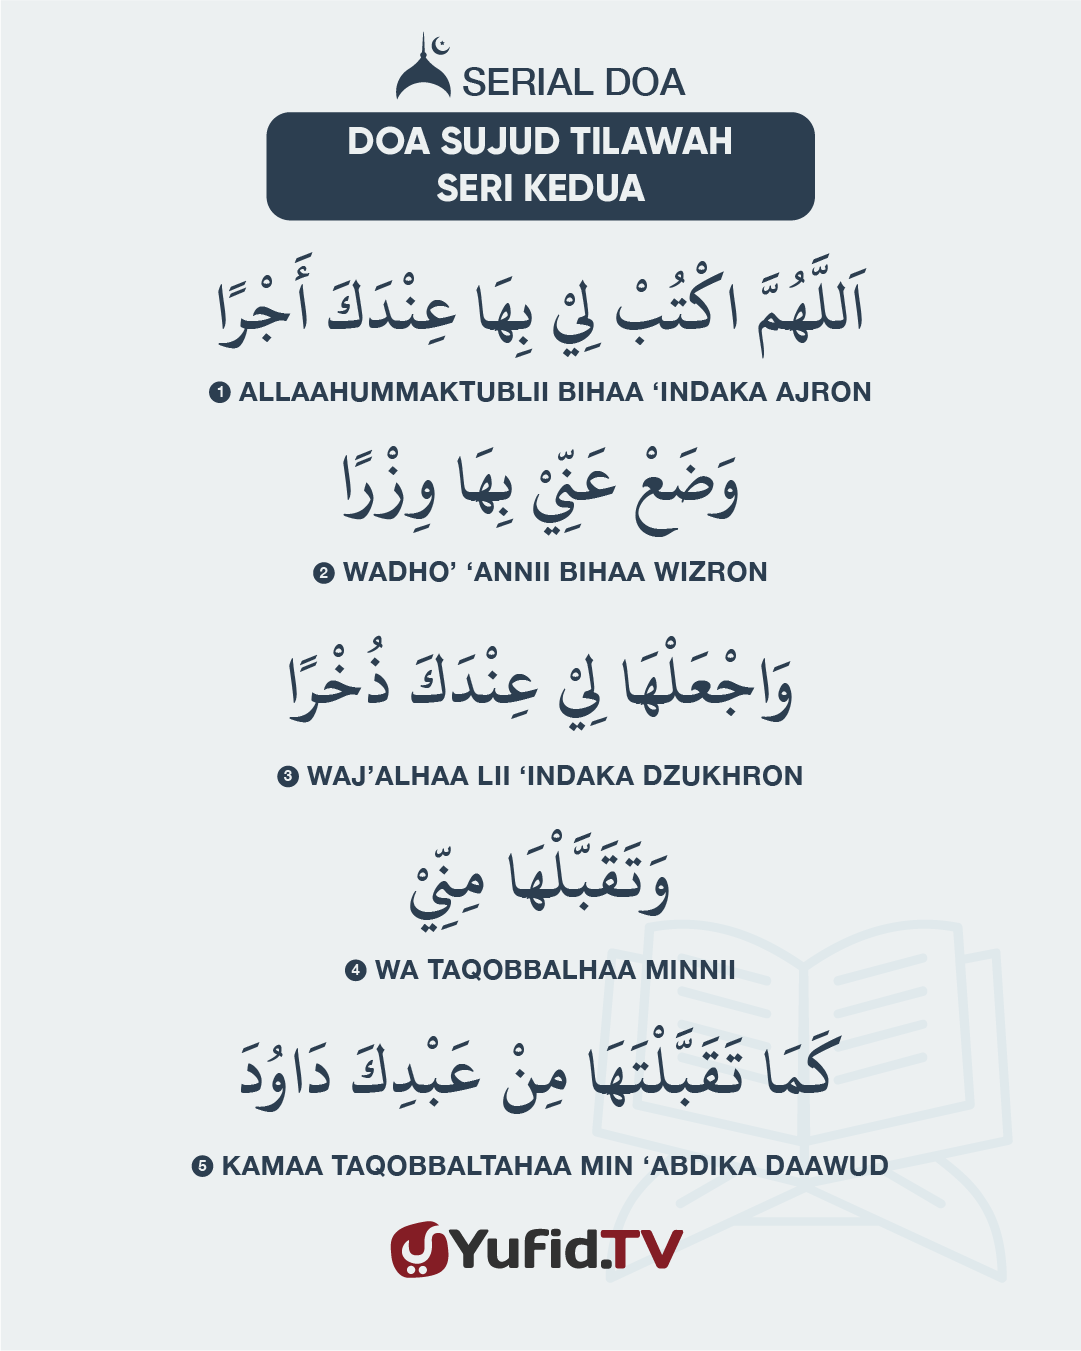 SERIAL DOA
DOA SUJUD TILAWAH
SERI KEDUA
اَللَّهُمَّ اكْتُبْ لِيْ بِهَا عِنْدَكَ أَجْرًا
1 ALLAAHUMMAKTUBLII BIHAA ‘INDAKA AJRON
وَضَعْ عَنِّيْ بِهَا وِزْرًا
2 WADHO’ ‘ANNII BIHAA WIZRON
وَاجْعَلْهَا لِيْ عِنْدَكَ ذُخْرًا
3 WAJ’ALHAA LII ‘INDAKA DZUKHRON
وَتَقَبَّلْهَا مِنِّيْ
4 WA TAQOBBALHAA MINNII
كَمَا تَقَبَّلْتَهَا مِنْ عَبْدِكَ دَاوُدَ
5 KAMAA TAQOBBALTAHAA MIN ‘ABDIKA DAAWUD
Yufid.TV